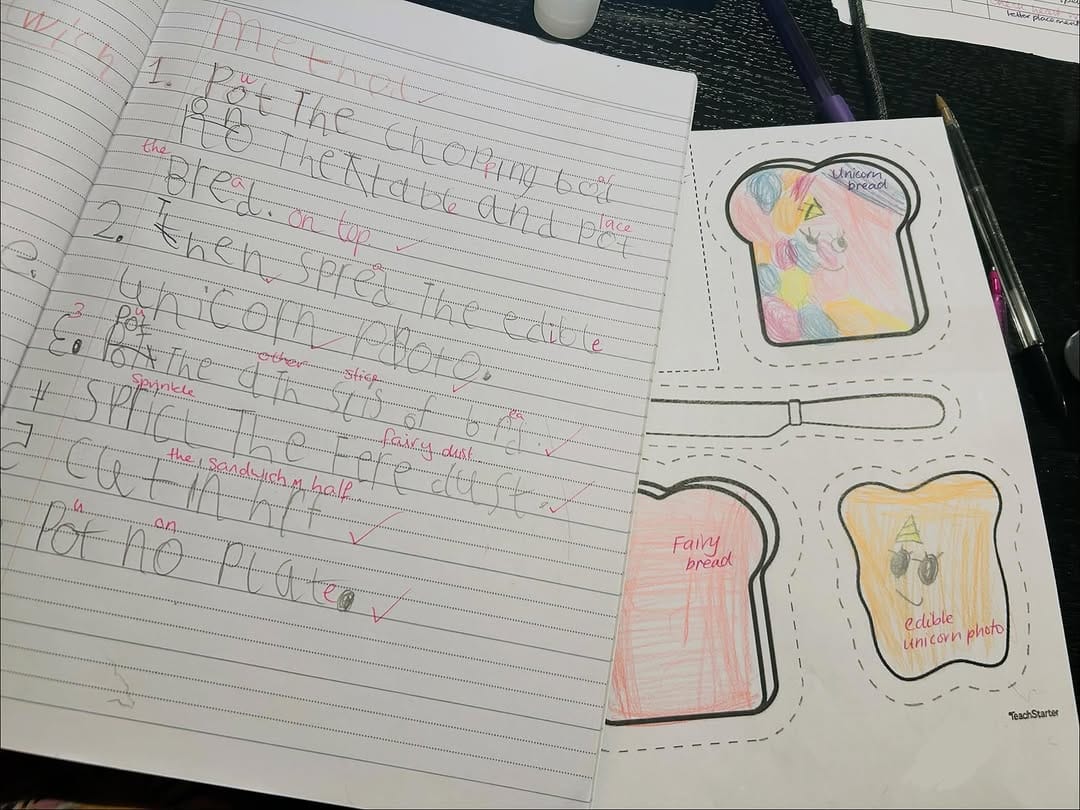 wich
Method
1. Pot The chopping bod
u
p
ar
no The table and pot
the
lace
Bred.
a
on top
2. then spred The edible
a
unicorn photo.
e.
3
u
Pot The
other slice
of brd.
ea
sprinkle
The Fere dust.
fairy dust
cut in hft
the sandwich in half
Pot no plate.
u on
Unicorn
bread
Fairy
bread
edible
unicorn photo
TeachStarter
letter placement